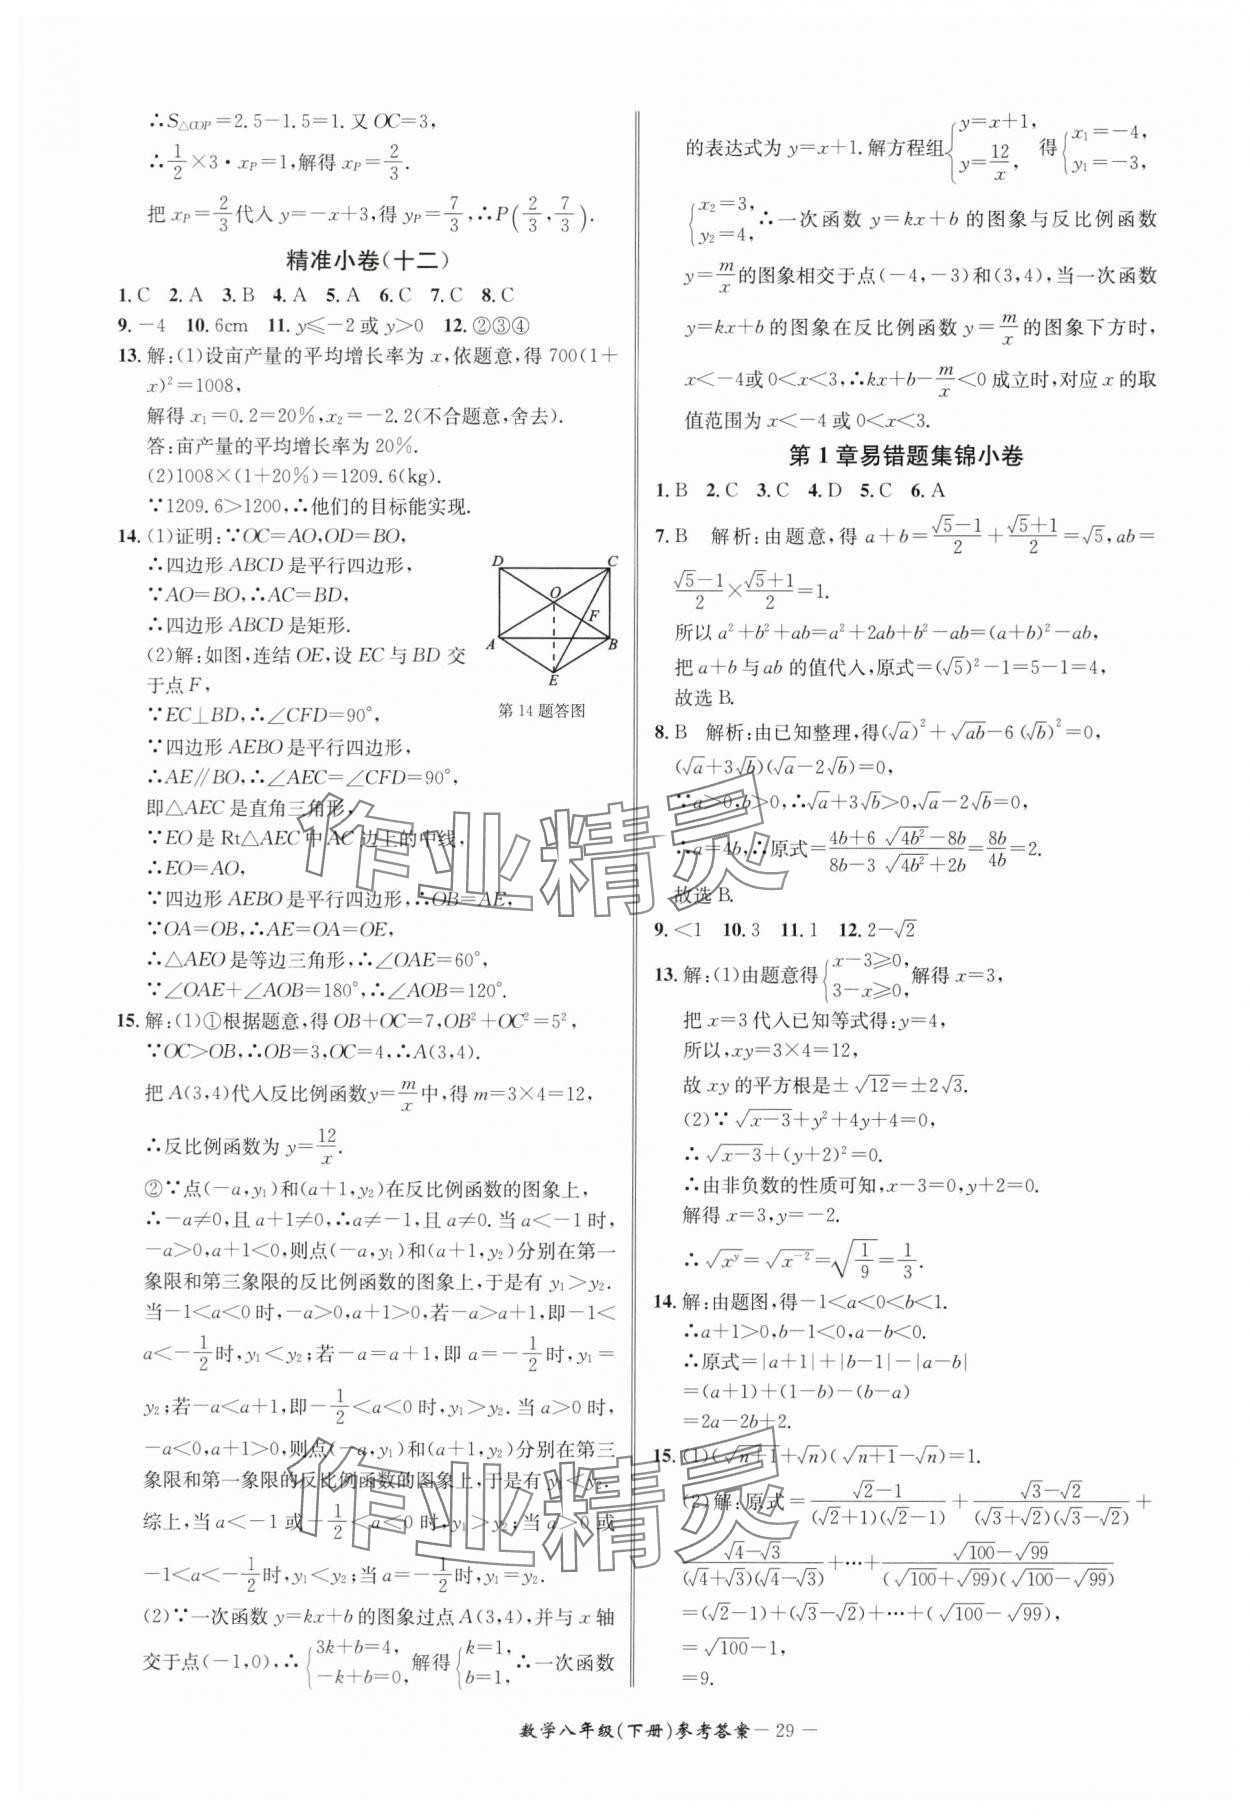 ∴S△COP=2.5−1.5=1.又 OC=3,
∴1/2×3·xP=1,解得 xP=2/3.
把 xP=2/3代入 y=−x+3,得 yP=7/3,∴P(2/3,7/3).
精准小卷(十二)
1. C 2. A 3. B 4. A 5. A 6. C 7. C 8. C
9. −4 10. 6cm 11. y≤−2或 y>0 12. ②③④
13. 解:(1)设亩产量的平均增长率为 x,依题意,得 700(1+
x)²=1008,
解得 x₁=0.2=20%,x₂=−2.2(不合题意,舍去).
答:亩产量的平均增长率为 20%.
(2)1008×(1+20%)=1209.6(kg).
∵1209.6>1200,∴他们的目标能实现.
14. (1)证明:∵OC=AO,OD=BO,
∴四边形 ABCD 是平行四边形,
∵AO=BO,∴AC=BD,
∴四边形 ABCD 是矩形.
(2)解:如图,连结 OE,设 EC 与 BD 交
于点 F,
∵EC⊥BD,∴∠CFD=90°,
∵四边形 AEBO 是平行四边形,
∴AE∥BO,∴∠AEC=∠CFD=90°,
即△AEC 是直角三角形,
∵EO 是 Rt△AEC 中 AC 边上的中线,
∴EO=AO,
∵四边形 AEBO 是平行四边形,∴OB=AE,
∵OA=OB,∴AE=OA=OE,
∴△AEO 是等边三角形,∴∠OAE=60°,
∵∠OAE+∠AOB=180°,∴∠AOB=120°.
D C
O
F
A B
E
第 14 题答图
15. 解:(1)①根据题意,得 OB+OC=7,OB²+OC²=5²,
∵OC>OB,∴OB=3,OC=4,∴A(3,4).
把 A(3,4)代入反比例函数y=m/x中,得 m=3×4=12,
∴反比例函数为 y=12/x.
②∵点(−a,y₁)和(a+1,y₂)在反比例函数的图象上,
∴−a≠0,且 a+1≠0,∴a≠−1,且 a≠0. 当 a<−1 时,
−a>0,a+1<0,则点(−a,y₁)和(a+1,y₂)分别在第一
象限和第三象限的反比例函数的图象上,于是有 y₁>y₂.
当−1<a<0 时,−a>0,a+1>0,若−a>a+1,即−1<
a<−1/2时,y₁<y₂;若−a=a+1,即 a=−1/2时,y₁=
y₂;若−a<a+1,即−1/2<a<0 时,y₁>y₂. 当 a>0 时,
−a<0,a+1>0,则点(−a,y₁)和(a+1,y₂)分别在第三
象限和第一象限的反比例函数的图象上,于是有 y₁<y₂.
综上,当 a<−1 或−1/2<a<0 时,y₁>y₂;当 a>0 或
−1<a<−1/2时,y₁<y₂;当 a=−1/2时,y₁=y₂.
(2)∵一次函数 y=kx+b 的图象过点 A(3,4),并与 x 轴
交于点(−1,0),∴{3k+b=4, −k+b=0, 解得{k=1, b=1, ∴一次函数
的表达式为 y=x+1. 解方程组{y=x+1, y=12/x, 得{x₁=−4, y₁=−3,
{x₂=3, y₂=4, ∴一次函数 y=kx+b 的图象与反比例函数
y=m/x的图象相交于点(−4,−3)和(3,4),当一次函数
y=kx+b 的图象在反比例函数 y=m/x的图象下方时,
x<−4或 0<x<3,∴kx+b−m/x<0 成立时,对应 x 的取
值范围为 x<−4 或 0<x<3.
第 1 章易错题集锦小卷
1. B 2. C 3. C 4. D 5. C 6. A
7. B 解析:由题意,得 a+b=(√5−1)/2+(√5+1)/2=√5,ab=
(√5−1)/2×(√5+1)/2=1.
所以 a²+b²+ab=a²+2ab+b²−ab=(a+b)²−ab,
把 a+b 与 ab 的值代入,原式=(√5)²−1=5−1=4,
故选 B.
8. B 解析:由已知整理,得(√a)²+√ab−6(√b)²=0,
(√a+3√b)(√a−2√b)=0,
∵a>0,b>0,∴√a+3√b>0,√a−2√b=0,
∴a=4b,∴原式=(4b+6√4b²−8b)/(8b−3√4b²+2b)=8b/4b=2.
故选 B.
9. <1 10. 3 11. 1 12. 2−√2
13. 解:(1)由题意得{x−3≥0, 3−x≥0, 解得 x=3,
把 x=3 代入已知等式得:y=4,
所以,xy=3×4=12,
故 xy 的平方根是±√12=±2√3.
(2)∵√x−3+y²+4y+4=0,
∴√x−3+(y+2)²=0.
∴由非负数的性质可知,x−3=0,y+2=0.
解得 x=3,y=−2.
∴√xʸ=√x⁻²=√(1/9)=1/3.
14. 解:由题图,得−1<a<0<b<1.
∴a+1>0,b−1<0,a−b<0.
∴原式=|a+1|+|b−1|−|a−b|
=(a+1)+(1−b)−(b−a)
=2a−2b+2.
15. (1)(√n+1+√n)(√n+1−√n)=1.
(2)解:原式=(√2−1)/((√2+1)(√2−1))+(√3−√2)/((√3+√2)(√3−√2))+
(√4−√3)/((√4+√3)(√4−√3))+···+(√100−√99)/((√100+√99)(√100−√99))
=(√2−1)+(√3−√2)+···+(√100−√99),
=√100−1,
=9.
作业精灵
作业精灵
数学八年级(下册)参考答案— 29 —